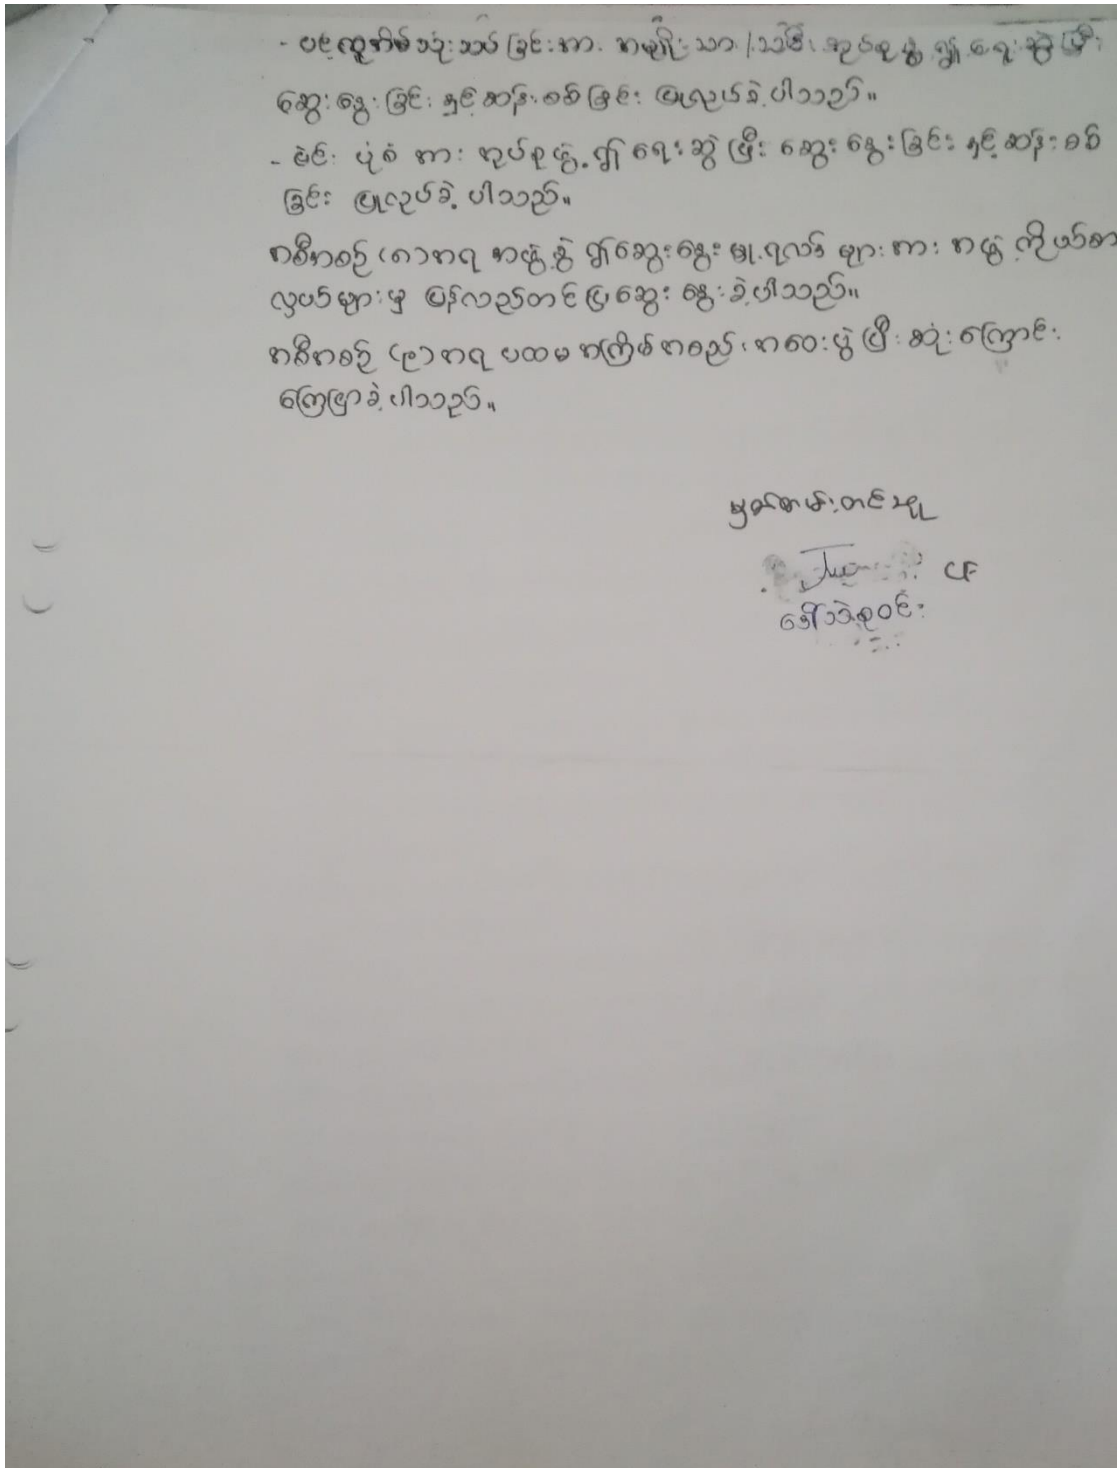 - ပင့်ကူအိမ်သုံးသပ်ခြင်းအား အမျိုးသား/သမီး အုပ်စုဖွဲ့၍ ရေးဆွဲပြီး
ဆွေးနွေးခြင်းနှင့်ဆန်းစစ်ခြင်း ပြုလုပ်ခဲ့ပါသည်။
- ပုံစံအား အုပ်စုဖွဲ့၍ ရေးဆွဲပြီး ဆွေးနွေးခြင်းနှင့်ဆန်းစစ်
ခြင်း ပြုလုပ်ခဲ့ပါသည်။
အစီအစဉ် (၈)အရ အဖွဲ့ဖွဲ့၍ဆွေးနွေးမှု ရလဒ်များအား အဖွဲ့ကိုယ်စား
လှယ်များမှ ပြန်လည်တင်ပြဆွေးနွေးခဲ့ပါသည်။
အစီအစဉ် (၉)အရ ပထမအကြိမ်အစည်းအဝေးပွဲပြီးဆုံးကြောင်း
ကြေငြာခဲ့ပါသည်။
မှတ်တမ်းတင်သူ
CF